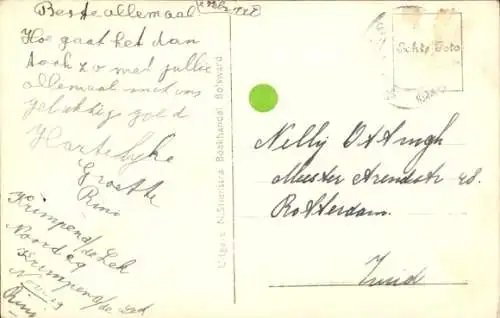 Beste allemaal
Hoe gaat het dan
toch zo met jullie
allemaal met ons
gelukkig goed
Hartelijke
Groetke
Rini
Krimpen a/de Lek
Noord 29
Krimpen a/de Lek
Rini
Uitgave N. Stienstra Boekhandel Bolsward
Schls Foto
Nelly
Meester Arendstr 28.
Rotterdam.
Zuid